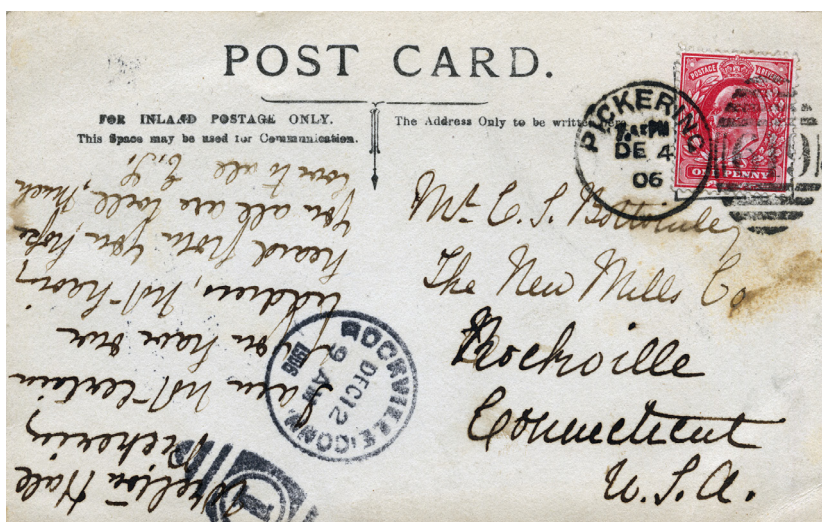 POST CARD.
FOR INLAND POSTAGE ONLY.
This Space may be used for Communication.
The Address Only to be written here
POSTAGE & REVENUE
ONE PENNY
PICKERING
DE 4
06
Mr. C. S. Bottomley
The New Mills Co
Rockville
Connecticut
U.S.A.
ROCKVILLE, CONN.
DEC 12
9 AM
1906
1
Hale
Pickering
I am not certain
you have our
address, not having
heard from you, hope
you all are well, much
love to all